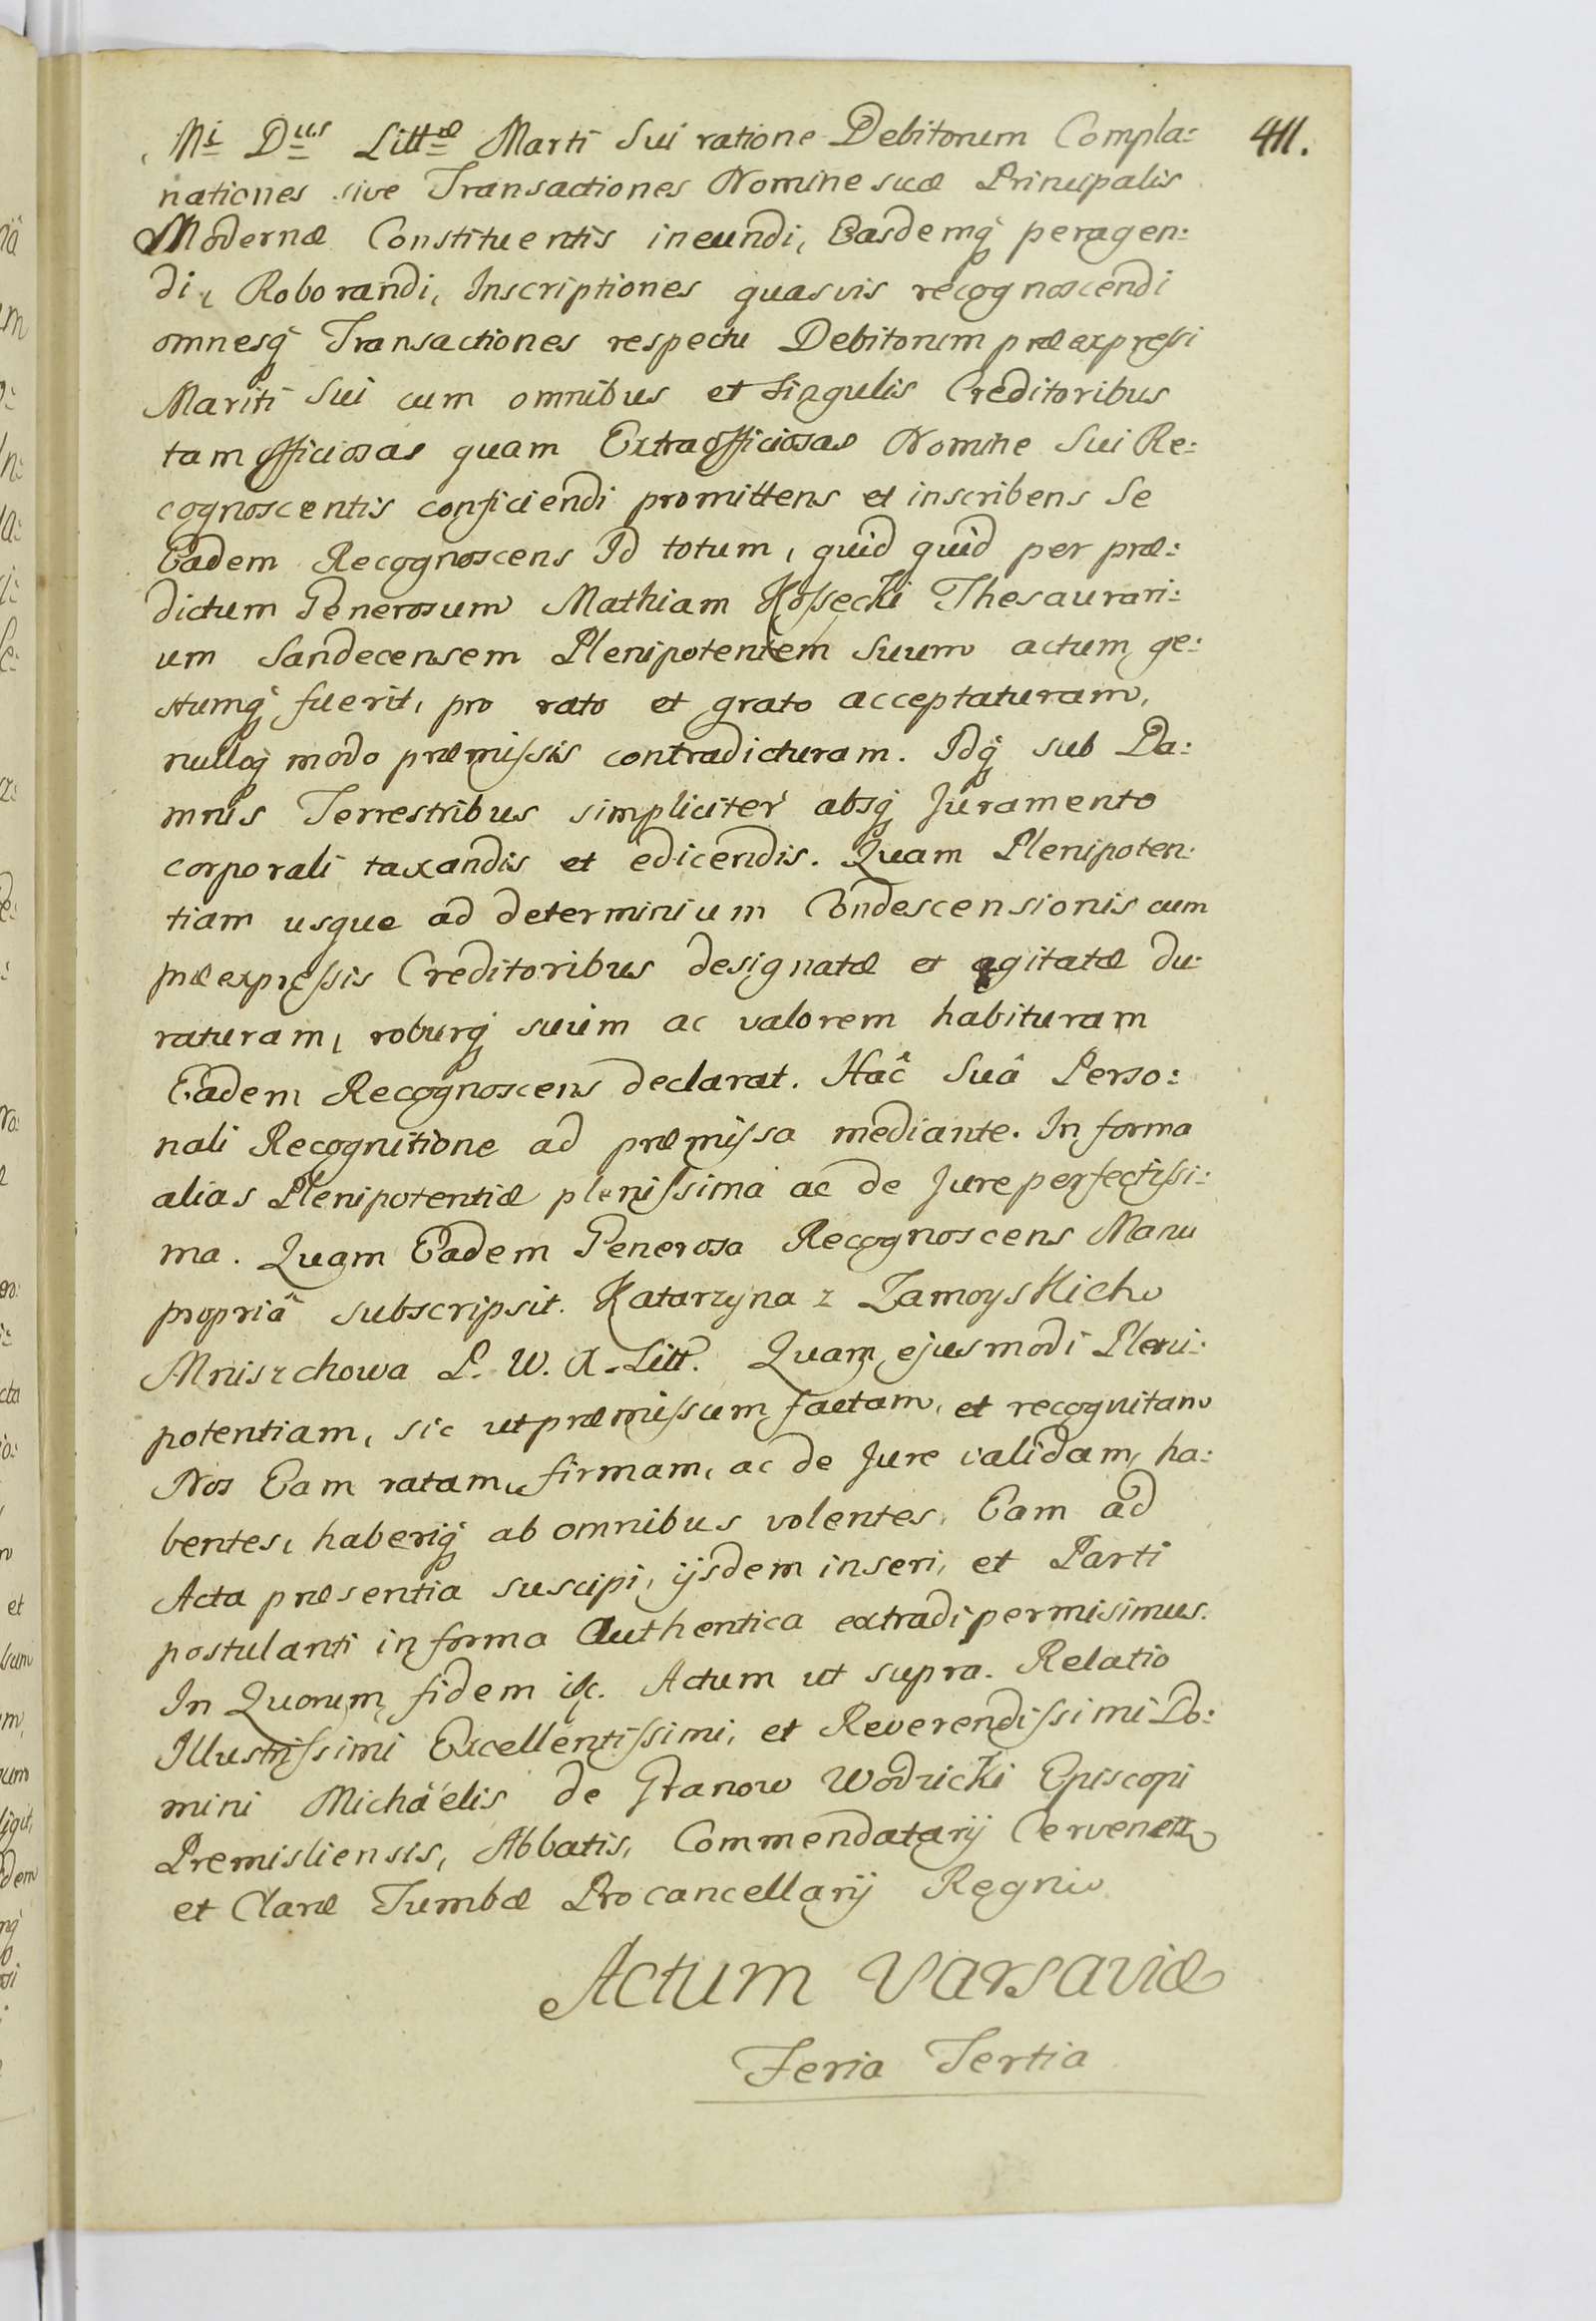 Mi Dus Littæ Marti Sui ratione Debitorum Compla:
411.
nationes sive Transactiones Nomine suæ Principalis
Modernæ Constituentis ineundi, Easdemq́ peragen:
di, Roborandi, Inscriptiones quasvis recognoscendi
omnesq́ Transactiones respectu Debitorum præexpreſsi
Mariti Sui cum omnibus et singulis Creditoribus
tam officiosas quam Extraofficiosas Nomine Sui Re:
cognoscentis conficiendi promittens et inscribens Se
Eadem Recognoscens Id totum, quid quid per præ:
dictum Generosum Mathiam Koſsecki Thesaurari:
um Sandecensem Plenipotentem Suum actum ge:
stumq́ fuerit, pro rato et grato acceptaturam,
nulloq́ modo præmiſsis contradicturam. Idq́ sub Da:
mnis Terrestribus simpliciter absq́ Juramento
corporali taxandis et edicendis. Quam Plenipoten:
tiam usque ad determinium Condescensionis cum
præexpreſsis Creditoribus designatæ et agitatæ du:
raturam, roburq́ suum ac valorem habituram
Eadem Recognoscens declarat. Hac̑ Suâ Perso:
nali Recognitione ad præmiſsa mediante. In forma
alias Plenipotentiæ pleniſsima ac de Jure perfectiſsi:
ma. Quam Eadem Generosa Recognoscens Manu
propriâ subscripsit. Katarzyna z Zamoyskich
Mniszchowa P. W. X. Litt. Quam ejusmodi Pleni:
potentiam, sic ut præmiſsum factam, et recognitam
Nos Eam ratam, firmam, ac de Jure validam, ha:
bentes, haberiq́ ab omnibus volentes, Eam ad
Acta præsentia suscipi, ijsdem inseri, et Parti
postulanti in forma Authentica extradi permisimus.
In Quorum fidem Actum ut supra. Relatio
Illustriſsimi Excellentiſsimi, et Reverendiſsimi Do:
mini Michaëlis de Granow Wodzicki Episcopi
Premisliensis, Abbatis, Commendatarij
et Claræ Tumbæ Procancellarij Regni
Actum Varsaviæ
Feria Tertia